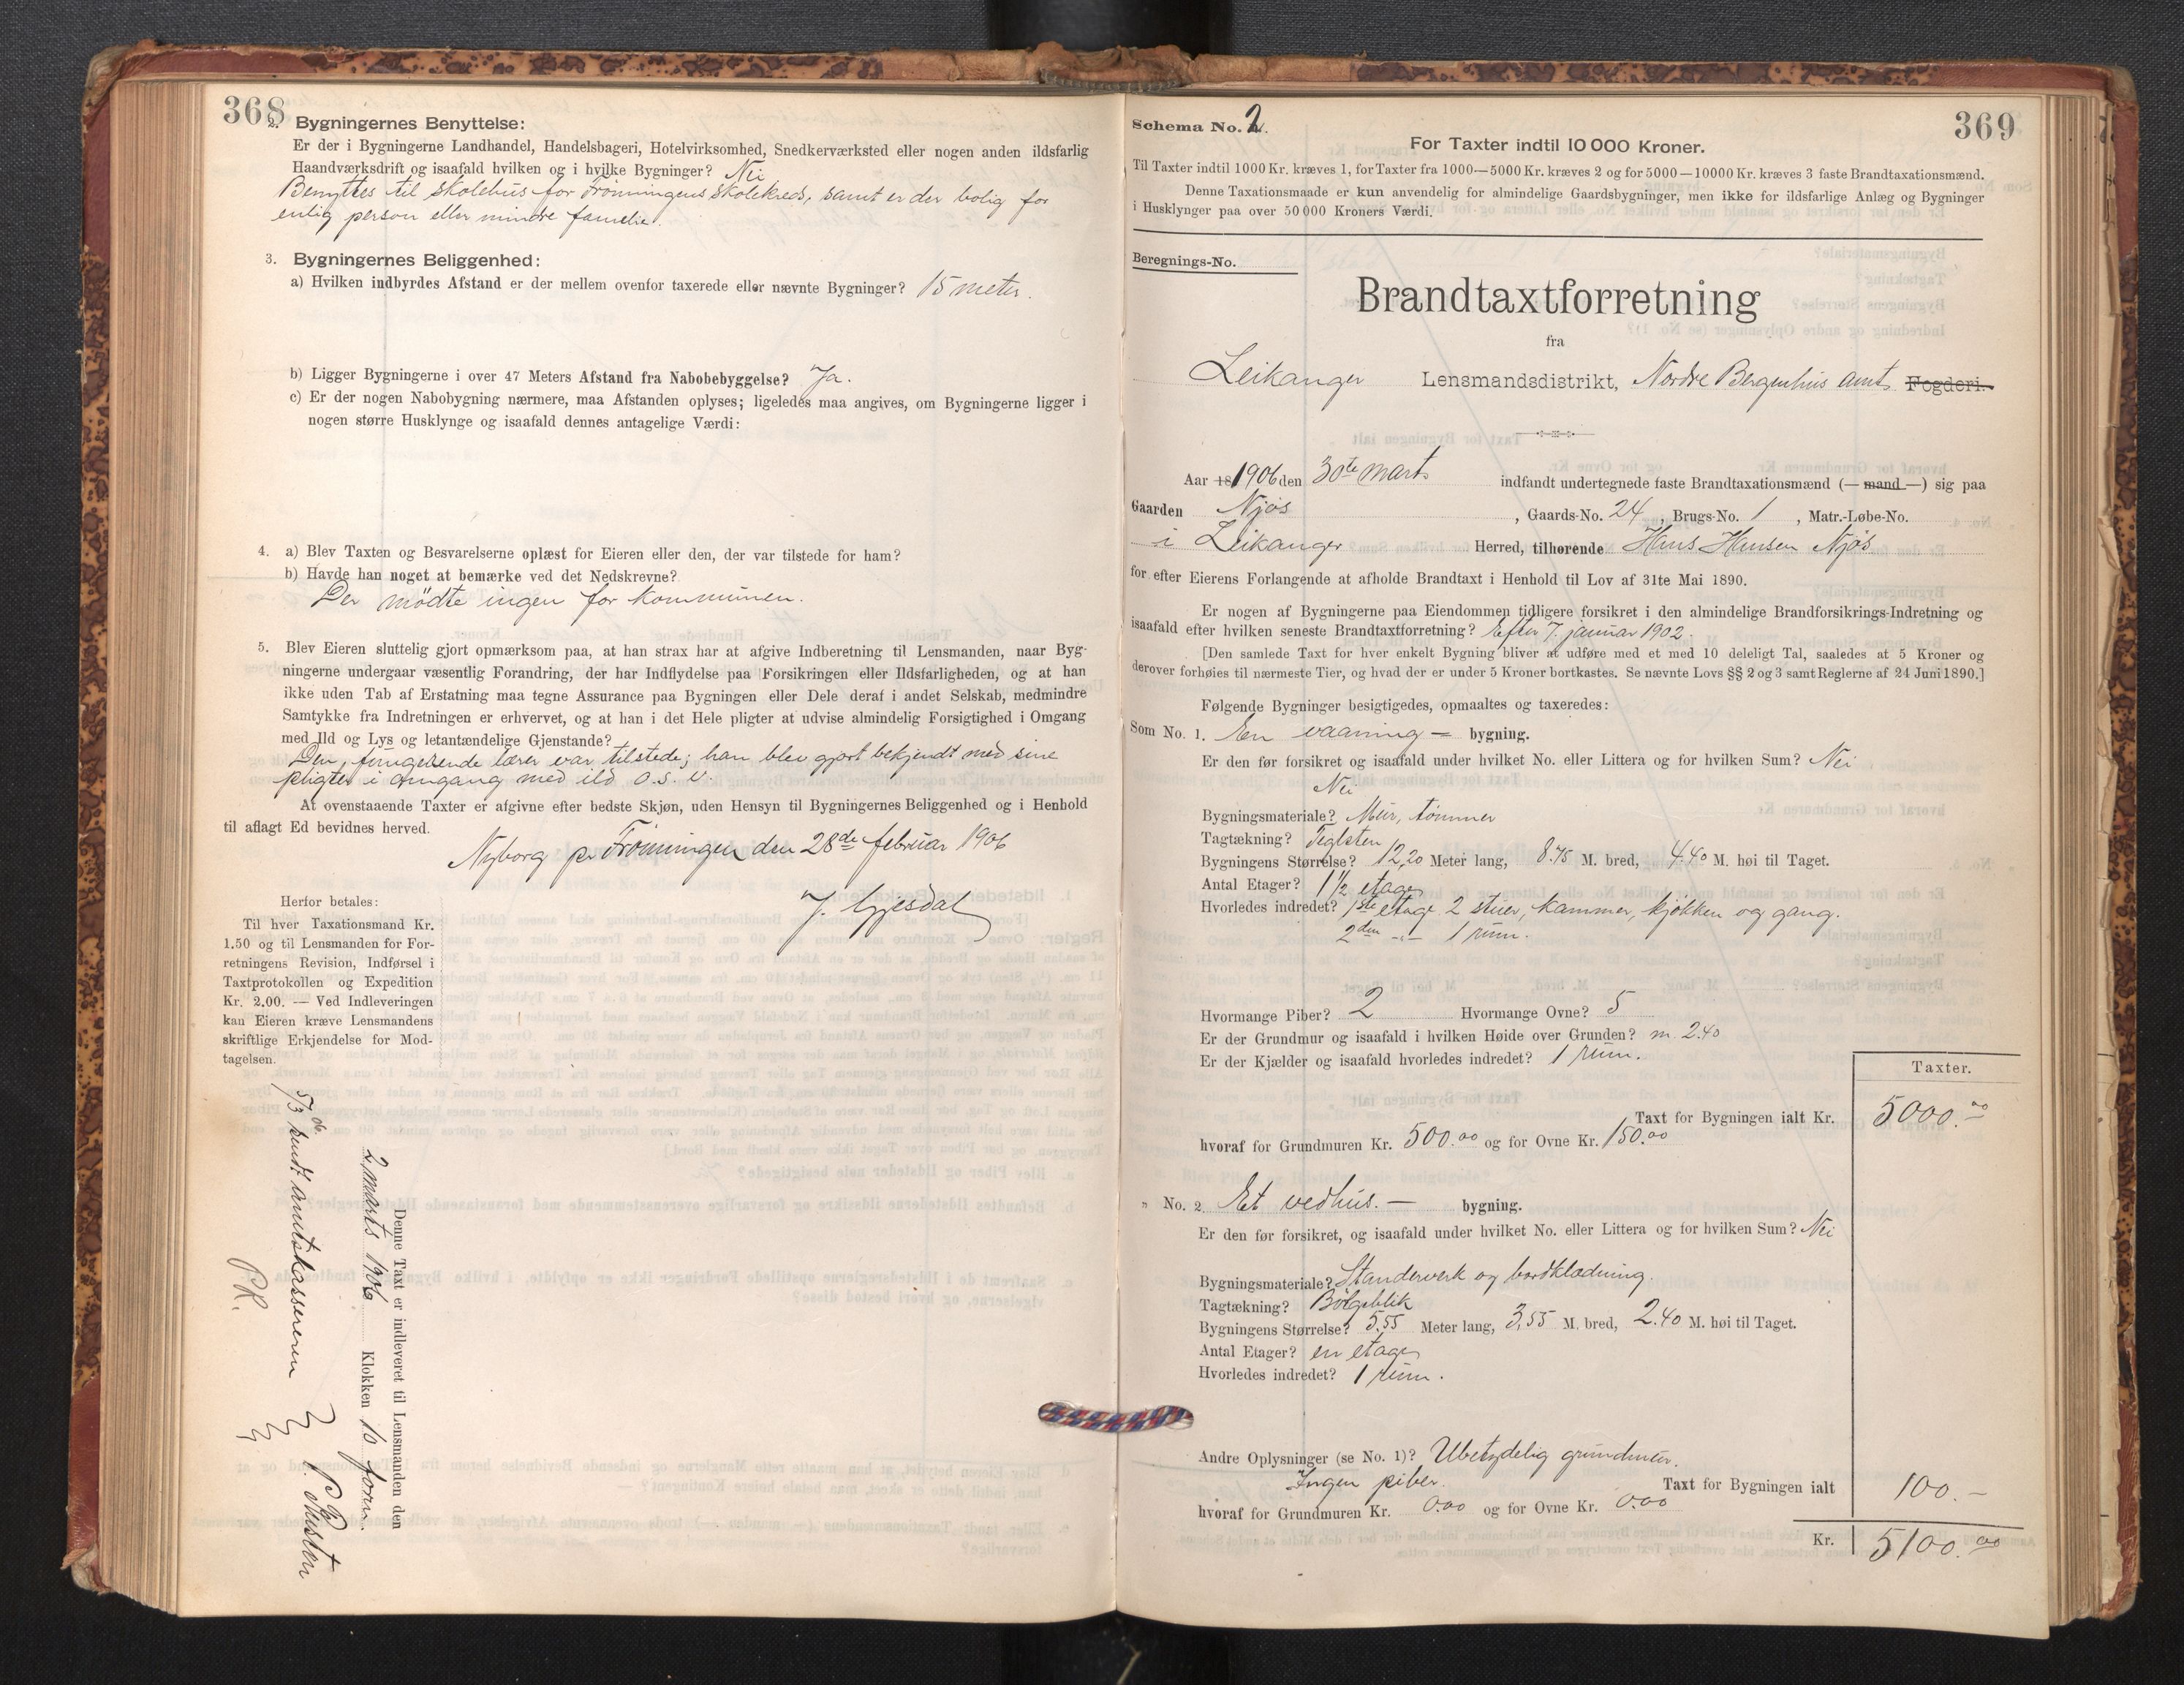 368
2. Bygningernes Benyttelse:
Er der i Bygningerne Landhandel, Handelsbageri, Hotelvirksomhed, Snedkerværksted eller nogen anden ildsfarlig
Haandværksdrift og isaafald hvilken og i hvilke Bygninger? Nei
Benyttes til skolehus for Frönningens skolekreds, samt er der bolig for
enlig person eller mindre familie.
3. Bygningernes Beliggenhed:
a) Hvilken indbyrdes Afstand er der mellem ovenfor taxerede eller nævnte Bygninger? 15 meter.
b) Ligger Bygningerne i over 47 Meters Afstand fra Nabobebyggelse? Ja.
c) Er der nogen Nabobygning nærmere, maa Afstanden oplyses; ligeledes maa angives, om Bygningerne ligger i
nogen større Husklynge og isaafald dennes antagelige Værdi:
4. a) Blev Taxten og Besvarelserne oplæst for Eieren eller den, der var tilstede for ham?
b) Havde han noget at bemærke ved det Nedskrevne?
Der mödte ingen for kommunen.
5. Blev Eieren sluttelig gjort opmærksom paa, at han strax har at afgive Indberetning til Lensmanden, naar Byg-
ningerne undergaar væsentlig Forandring, der har Indflydelse paa Forsikringen eller Ildsfarligheden, og at han
ikke uden Tab af Erstatning maa tegne Assurance paa Bygningen eller Dele deraf i andet Selskab, medmindre
Samtykke fra Indretningen er erhvervet, og at han i det Hele pligter at udvise almindelig Forsigtighed i Omgang
med Ild og Lys og letantændelige Gjenstande?
Den fungerende lærer var tilstede; han blev gjort bekjendt med sine
pligter i omgang med ild o. s. v.
At ovenstaaende Taxter er afgivne efter bedste Skjøn, uden Hensyn til Bygningernes Beliggenhed og i Henhold
til aflagt Ed bevidnes herved.
Nyborg pr Frönningen den 28de februar 1906
J. Gjesdal
Herfor betales:
Til hver Taxationsmand Kr.
1.50 og til Lensmanden for For-
retningens Revision, Indførsel i
Taxtprotokollen og Expedition
Kr. 2.00. — Ved Indleveringen
kan Eieren kræve Lensmandens
skriftlige Erkjendelse for Mod-
tagelsen.
Denne Taxt er indleveret til Lensmanden den
2 marts 1906 Klokken 10 form.
5/3 06. sendt amtskassereren
PR.
369
Schema No. 2.
For Taxter indtil 10 000 Kroner.
Til Taxter indtil 1000 Kr. kræves 1, for Taxter fra 1000—5000 Kr. kræves 2 og for 5000—10000 Kr. kræves 3 faste Brandtaxationsmænd.
Denne Taxationsmaade er kun anvendelig for almindelige Gaardsbygninger, men ikke for ildsfarlige Anlæg og Bygninger
i Husklynger paa over 50 000 Kroners Værdi.
Beregnings-No.
Brandtaxtforretning
fra
Leikanger Lensmandsdistrikt, Nordre Bergenhus amt Fogderi.
Aar 18 1906 den 30te marts indfandt undertegnede faste Brandtaxationsmænd (— mand —) sig paa
Gaarden Njøs, Gaards-No. 24, Brugs-No. 1, Matr.-Løbe-No.
i Leikanger Herred, tilhørende Hans Hansen Njøs
for efter Eierens Forlangende at afholde Brandtaxt i Henhold til Lov af 31te Mai 1890.
Er nogen af Bygningerne paa Eiendommen tidligere forsikret i den almindelige Brandforsikrings-Indretning og
isaafald efter hvilken seneste Brandtaxtforretning? Efter 7. januar 1902.
[Den samlede Taxt for hver enkelt Bygning bliver at udføre med et med 10 deleligt Tal, saaledes at 5 Kroner og
derover forhøies til nærmeste Tier, og hvad der er under 5 Kroner bortkastes. Se nævnte Lovs §§ 2 og 3 samt Reglerne af 24 Juni 1890.]
Følgende Bygninger besigtigedes, opmaaltes og taxeredes:
Som No. 1. En vaaning — bygning.
Er den før forsikret og isaafald under hvilket No. eller Littera og for hvilken Sum? Nei
Nei
Bygningsmateriale? Mur, tömmer
Tagtækning? Teglsten
Bygningens Størrelse? 12,20 Meter lang, 8.75 M. bred, 4.40 M. høi til Taget.
Antal Etager? 1 1/2 etage
Hvorledes indredet? 1ste etage 2 stuer, kammer, kjökken og gang.
2den -"- 1 rum.
Hvormange Piber? 2 Hvormange Ovne? 5
Er der Grundmur og isaafald i hvilken Høide over Grunden? m. 2.40
Er der Kjælder og isaafald hvorledes indredet? 1 rum.
Taxter.
Taxt for Bygningen ialt Kr. 5000.00
hvoraf for Grundmuren Kr. 500.00 og for Ovne Kr. 150.00
" No. 2. Et vedhus. — bygning.
Er den før forsikret, og isaafald under hvilket No. eller Littera og for hvilken Sum? Nei
Bygningsmateriale? Standerverk og bordklædning.
Tagtækning? Bölgeblik
Bygningens Størrelse? 5,55 Meter lang, 3,55 M. bred, 2.40 M. høi til Taget.
Antal Etager? en etage
Hvorledes indredet? 1 rum.
Andre Oplysninger (se No. 1)? Ubetydelig grundmur.
Ingen piber. Taxt for Bygningen ialt 100.—
hvoraf for Grundmuren Kr. 0.00 og for Ovne Kr. 0.00
Kr. 5100.00